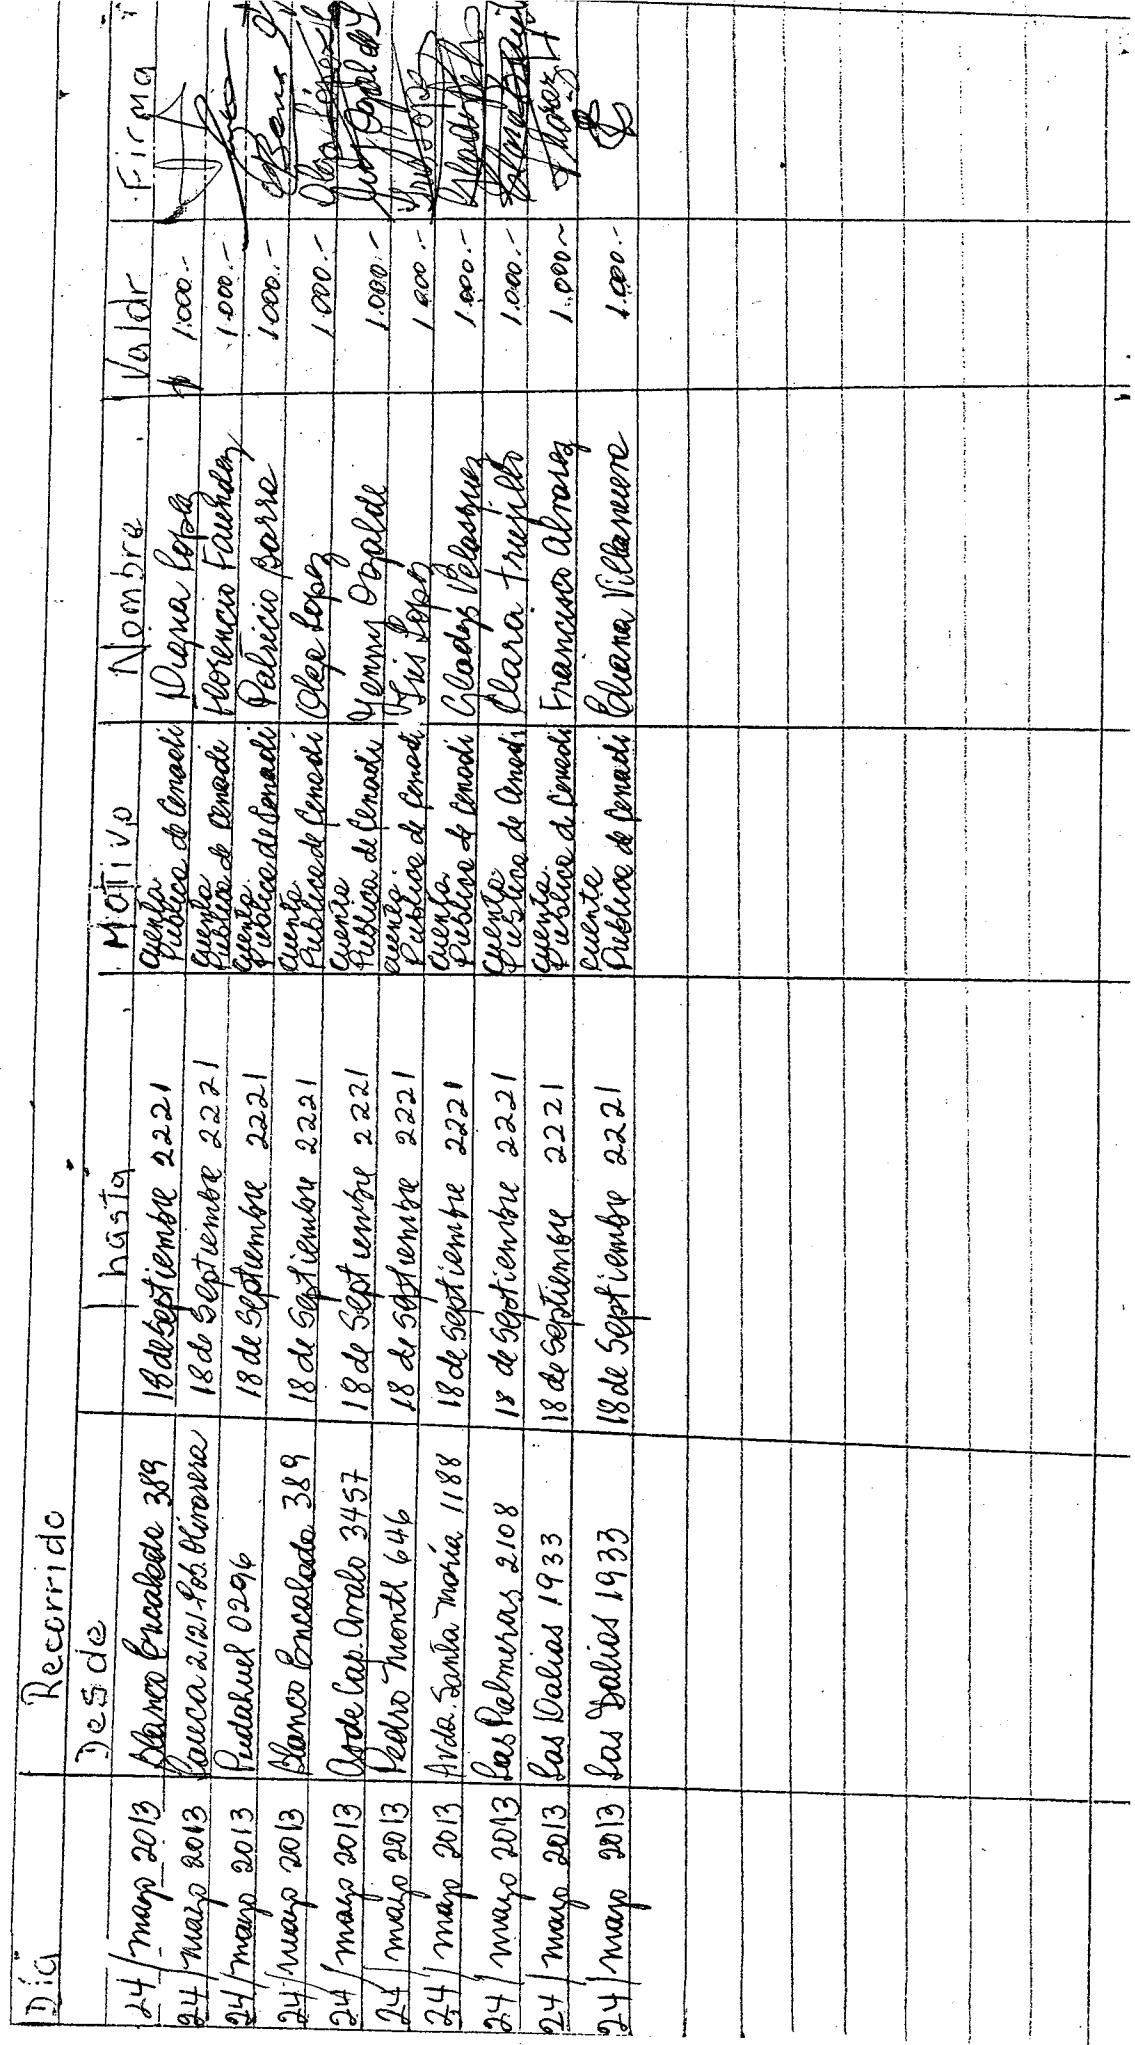 Día Recorrido
Desde hasta Motivo Nombre Valor Firma
24/mayo 2013 Blanco Encalada 389 18 de Septiembre 2221 Cuenta Publica de Cenadi Digna Lopez $ 1.000.-
24/mayo 2013 Cauca 2121 Pob. 18 de Septiembre 2221 Cuenta Publica de Cenadi Florencio Faundez 1.000.-
24/mayo 2013 Pudahuel 0296 18 de Septiembre 2221 Cuenta Publica de Cenadi Patricio Barra 1.000.-
24/mayo 2013 Blanco Encalada 389 18 de Septiembre 2221 Cuenta Publica de Cenadi Olga Lopez 1.000.- Olga López
24/mayo 2013 3457 18 de Septiembre 2221 Cuenta Publica de Cenadi Yenny Ogalde 1.000.-
24/mayo 2013 Pedro Montt 646 18 de Septiembre 2221 Cuenta Publica de Cenadi Iris Lopez 1.000.-
24/mayo 2013 Avda. Santa María 1188 18 de Septiembre 2221 Cuenta Publica de Cenadi Gladys Velasquez 1.000.-
24/mayo 2013 Las Palmeras 2108 18 de Septiembre 2221 Cuenta Publica de Cenadi Clara Trujillo 1.000.-
24/mayo 2013 Las Dalias 1933 18 de Septiembre 2221 Cuenta Publica de Cenadi Francisco Alvarez 1.000.-
24/mayo 2013 Las Dalias 1933 18 de Septiembre 2221 Cuenta Publica de Cenadi Eliana Villanueva 1.000.-